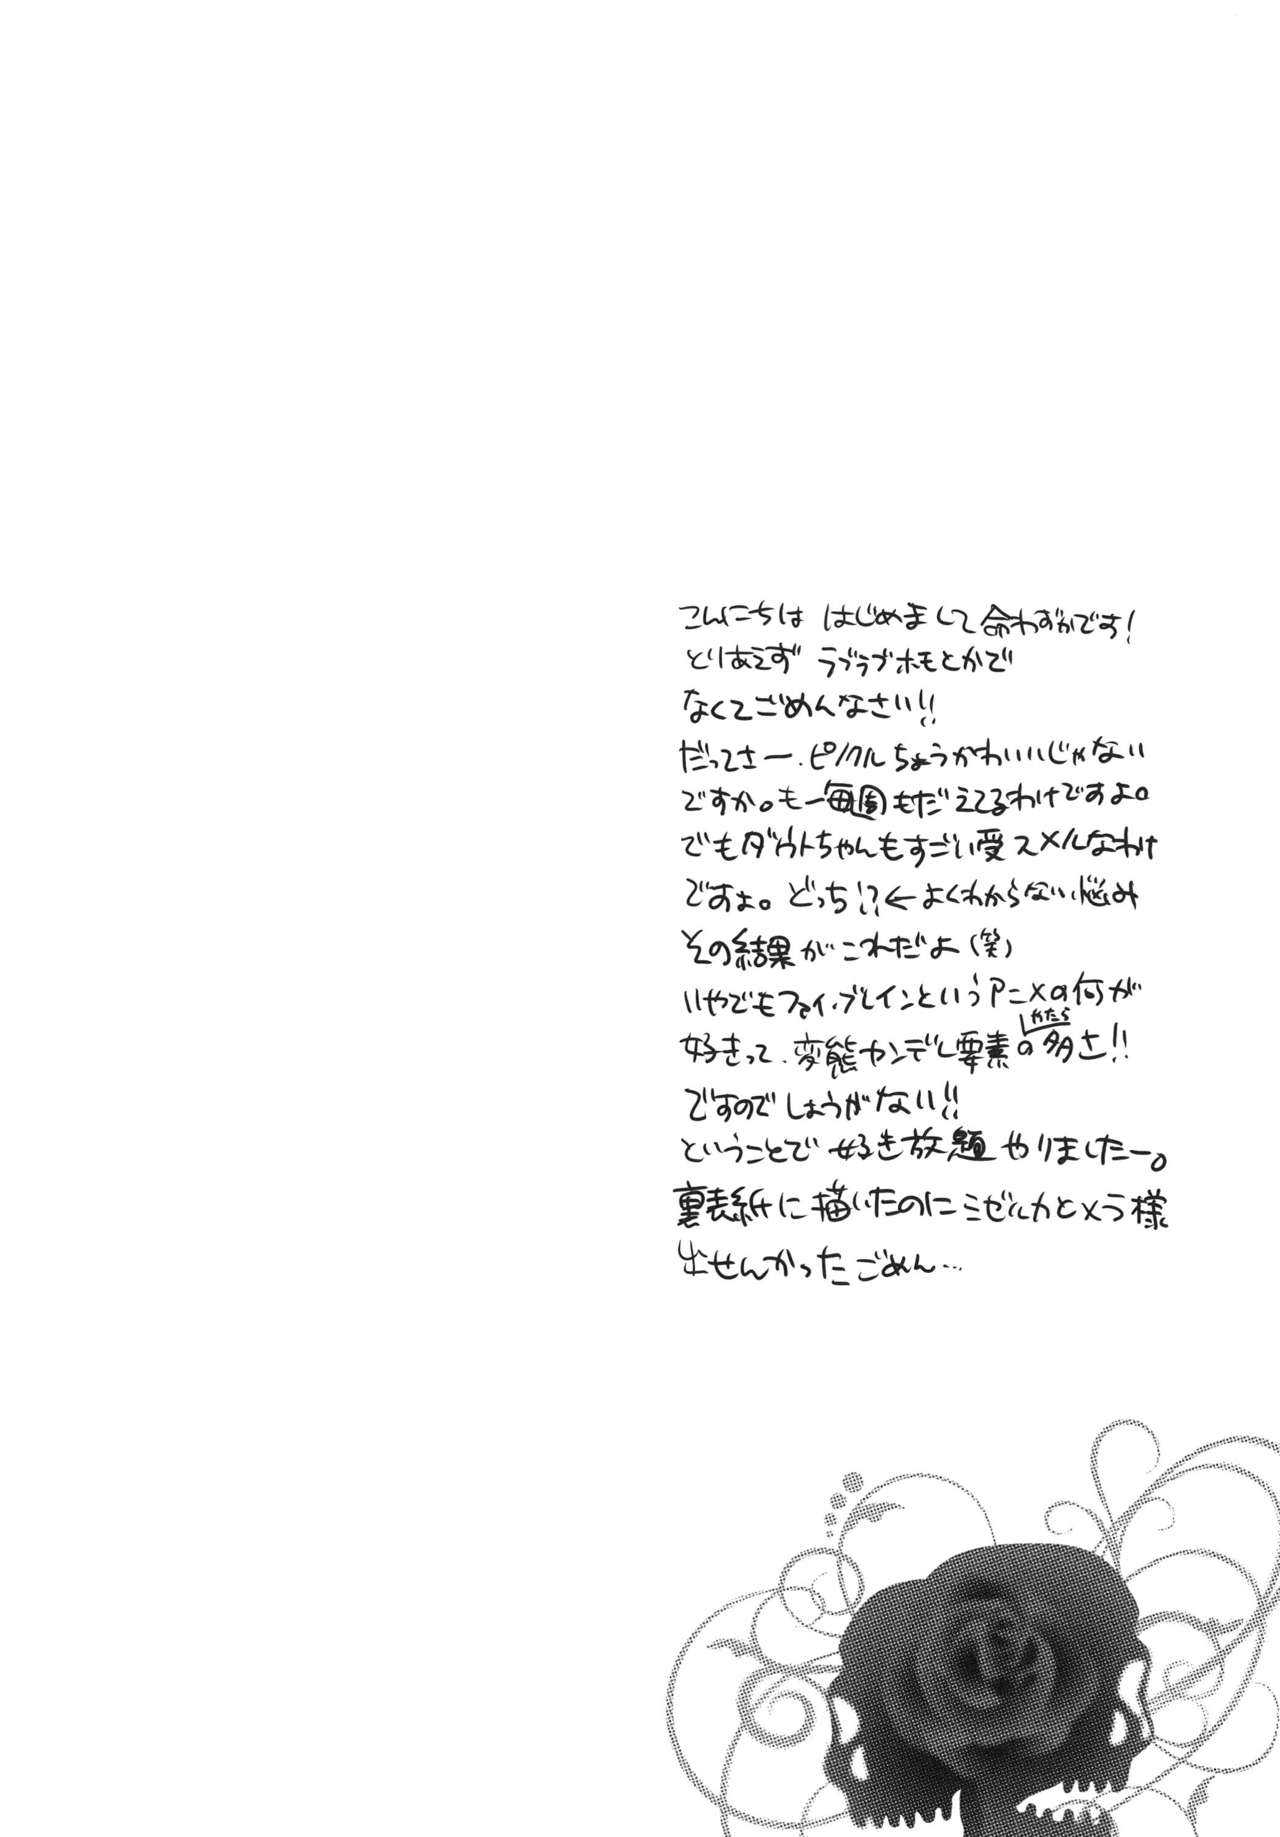 こんにちは はじめまして命わずかです!
とりあえず ラブラブホモとかで
なくてごめんなさい!!
だってさー、ピノクルちょうかわいいじゃない
ですか。もー毎週もだえてるわけですよ。
でもダウトちゃんもすごい受スメルなわけ
ですよ。どっち!?←よくわからない悩み
その結果がこれだよ(笑)
いやでもファイ・ブレインというアニメの何が
好きって、変態ヤンデレ要素のやたら多さ!!
ですのでしょうがない!!
ということで好き放題やりましたー。
裏表紙に描いたのにミゼルカとメラ様
出せんかったごめん…